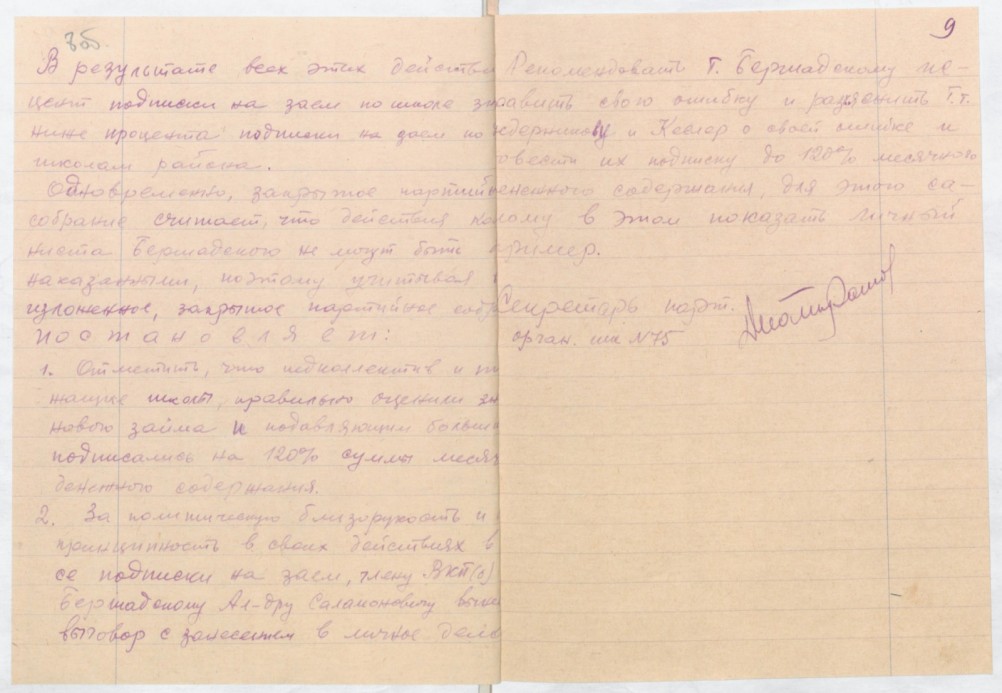 8об.
В результате всех этих действи
цент подписки на заем по школе
ниже процента подписки на заем по
школам района.
Одновременно, закрытое партий
собрание считает, что действия
ниста Бершадского не могут быть
наказанными, поэтому учитывая
изложенное, закрытое партийное собр
постановляет:
1. Отметить, что педколлектив и
жащие школы, правильно оценили зн
нового займа и подавляющим больши
подписались на 120% суммы месяч
денежного содержания.
2. За политическую близорукость и
принципность в своих действиях в
се подписки на заем, члену ВКП(б)
Бершадскому Ал-дру Саламоновичу вын
выговор с занесением в личное дело
9
Рекомендовать т. Бершадскому
равить свою ошибку и разъяснить т.т.
и Кеслер о своей ошибке и
овести их подписку до 120% месячного
енежного содержания, для этого са-
мому в этом показать личный
ример.
Секретарь парт.
орган. шк N75